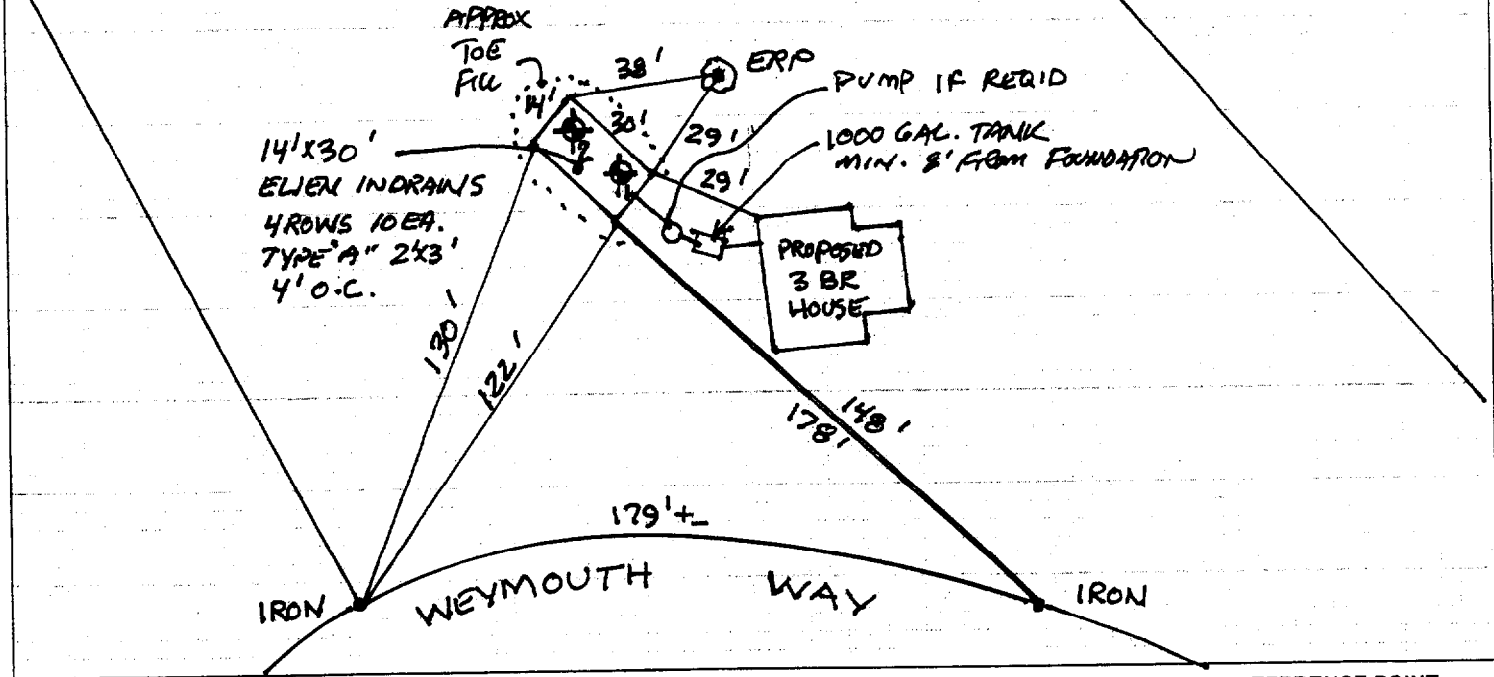 APPROX
TOE
FILL
14'
38'
ERP
PUMP IF REQ'D
30'
29'
1000 GAL. TANK
MIN. 8' FROM FOUNDATION
29'
14'X30'
ELJEN INDRAINS
4 ROWS 10 EA.
TYPE "A" 2'X3'
4' O.C.
PROPOSED
3 BR
HOUSE
130'
122'
148'
178'
179'+-
IRON
WEYMOUTH WAY
IRON